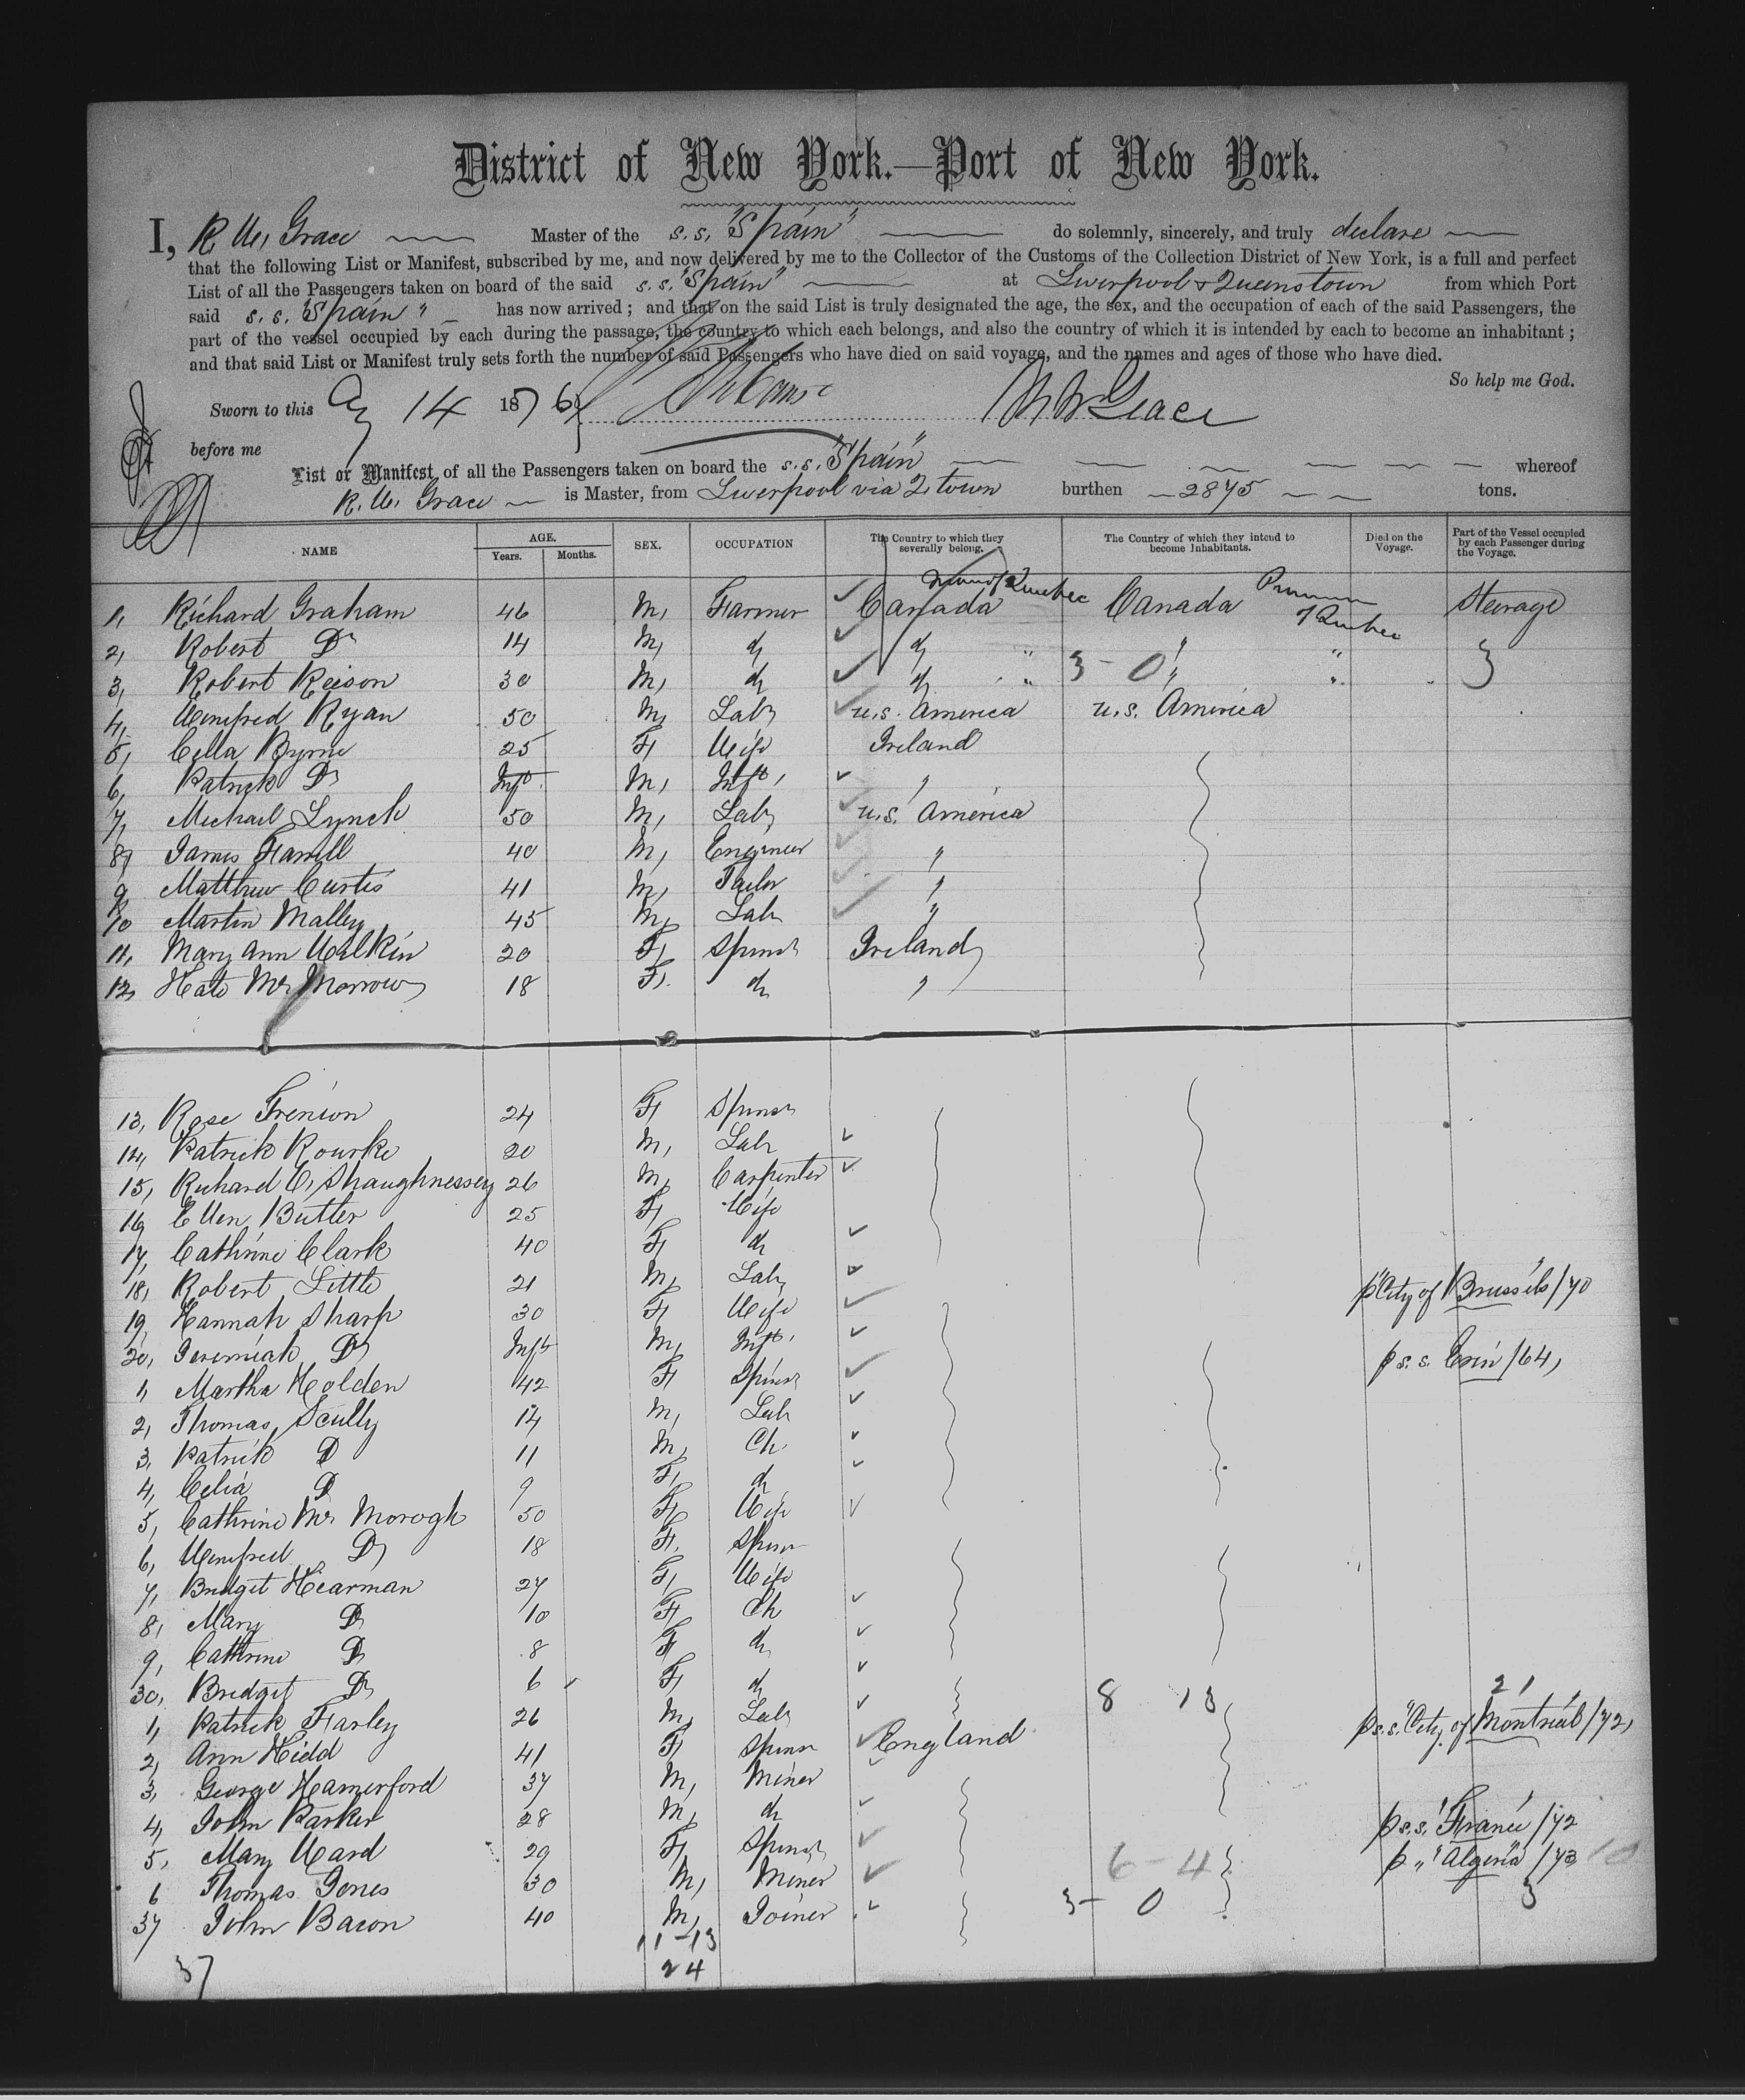 District of New York.—Port of New York.
I, R. W. Grace Master of the s.s. "Spain" do solemnly, sincerely, and truly declare
that the following List or Manifest, subscribed by me, and now delivered by me to the Collector of the Customs of the Collection District of New York, is a full and perfect
List of all the Passengers taken on board of the said s.s. "Spain" at Liverpool & Queenstown from which Port
said s.s. "Spain" has now arrived; and that on the said List is truly designated the age, the sex, and the occupation of each of the said Passengers, the
part of the vessel occupied by each during the passage, the country to which each belongs, and also the country of which it is intended by each to become an inhabitant;
and that said List or Manifest truly sets forth the number of said Passengers who have died on said voyage, and the names and ages of those who have died.
So help me God.
Sworn to this Ag 14 1876 R W Grace
before me
List or Manifest of all the Passengers taken on board the s.s. "Spain" whereof
R. W. Grace is Master, from Liverpool via Qtown burthen 2875 tons.
NAME AGE. Years. Months. SEX. OCCUPATION The Country to which they severally belong. The Country of which they intend to become Inhabitants. Died on the Voyage. Part of the Vessel occupied by each Passenger during the Voyage.
1, Richard Graham 46 M, Farmer Canada Quebec Canada Province of Quebec Steerage
2, Robert Do 14 M, do do " " "
3, Robert Reison 30 M, do do " 3 - 0 " " 3
4, Winifred Ryan 50 M, Labr U.S. America U.S. America
5, Cella Byrne 25 F, Wife Ireland
6, Patrick Do Inft. M, Inft, "
7, Michael Lynch 50 M, Labr U.S. America
8, James Farrell 40 M, Engineer "
9, Matthew Curtis 41 M, Tailor "
10 Martin Malley 45 M, Labr "
11, Mary Ann Wilkin 20 F, Spinsr Ireland
12, Kate McMorrow 18 F, do "
13, Rose Frenion 24 F, Spinsr
14, Patrick Rourke 20 M, Labr
15, Richard O'Shaughnessey 26 M, Carpenter
16, Ellen Butler 25 F, Wife
17, Cathrine Clark 40 F, do
18, Robert Little 21 M, Labr p "City of Brussels" /70
19, Hannah Sharp 30 F, Wife
20, Jeremiah Do Inft M, Inft, p s.s. Erin /64,
1, Martha Holden 42 F, Spinsr
2, Thomas Scully 14 M, Labr
3, Patrick Do 11 M, Ch
4, Celia Do 9 F, do
5, Cathrine McMorogh 50 F, Wife
6, Winifred Do 18 F, Spinsr
7, Bridget Hearman 27 F, Wife
8, Mary Do 10 F, Ch
9, Cathrine Do 8 F, do
30, Bridget Do 6 F, do 8 13 21
1, Patrick Farley 26 M, Labr p s.s. "City of Montreal" /72,
2, Ann Kidd 41 F, Spinsr England
3, George Hamerford 37 M, Miner
4, John Parker 28 M, do p s.s. "France" /72
5, Mary Ward 29 F, Spinsr 6 - 4 p " "Algeria" /73 10
6 Thomas Jones 30 M, Miner 3 - 0 3
37 John Bacon 40 M, Joiner
37 11 - 13
24